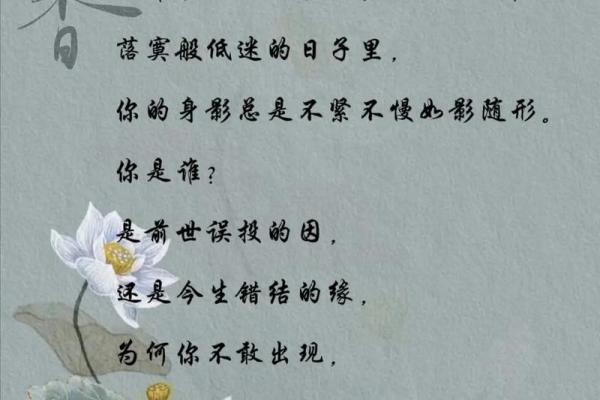 春
落寞般低迷的日子里，
你的身影总是不紧不慢如影随形。
你是谁？
是前世误投的因，
还是今生错结的缘，
为何你不敢出现，